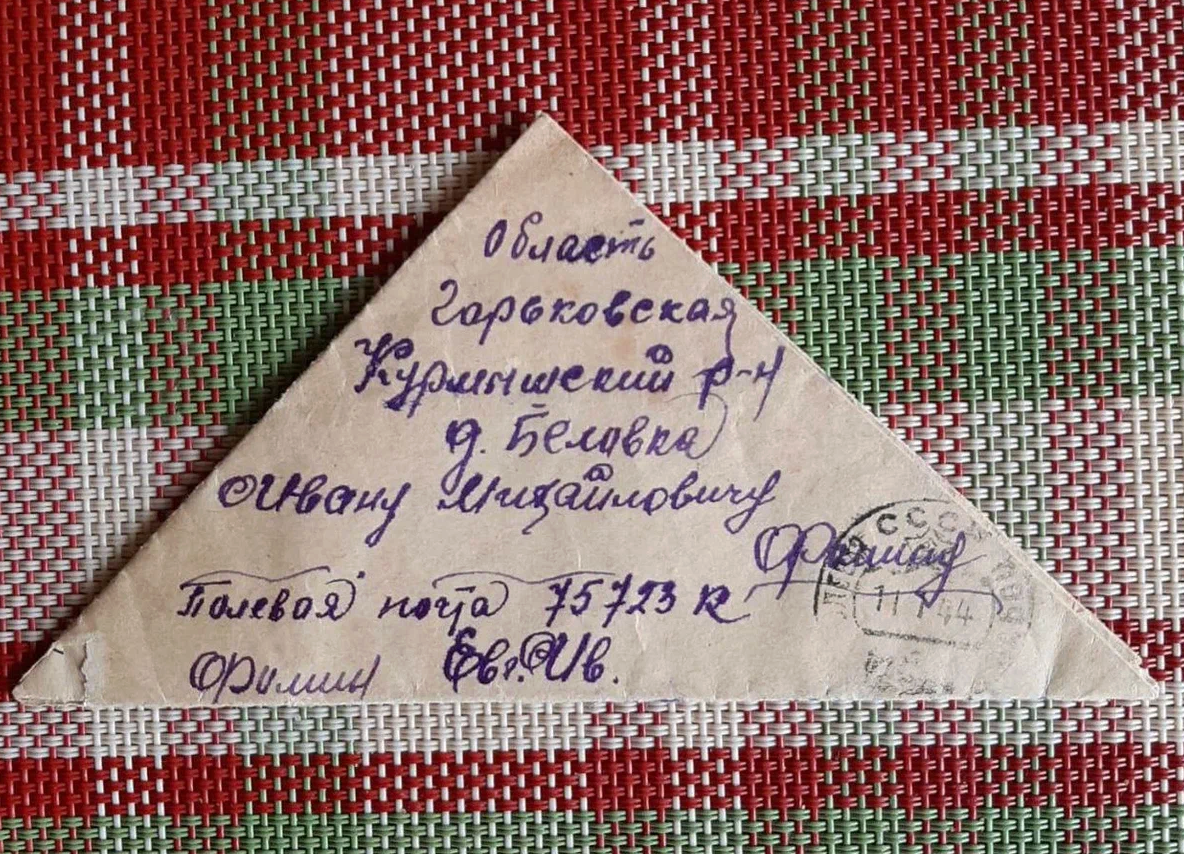 Область
Горьковская
Курмышский р-н
д. Беловка
Ивану Михайловичу
Фомину
Полевая почта 75723 к
Фомин Евг. Ив.
СССР
11 1 44